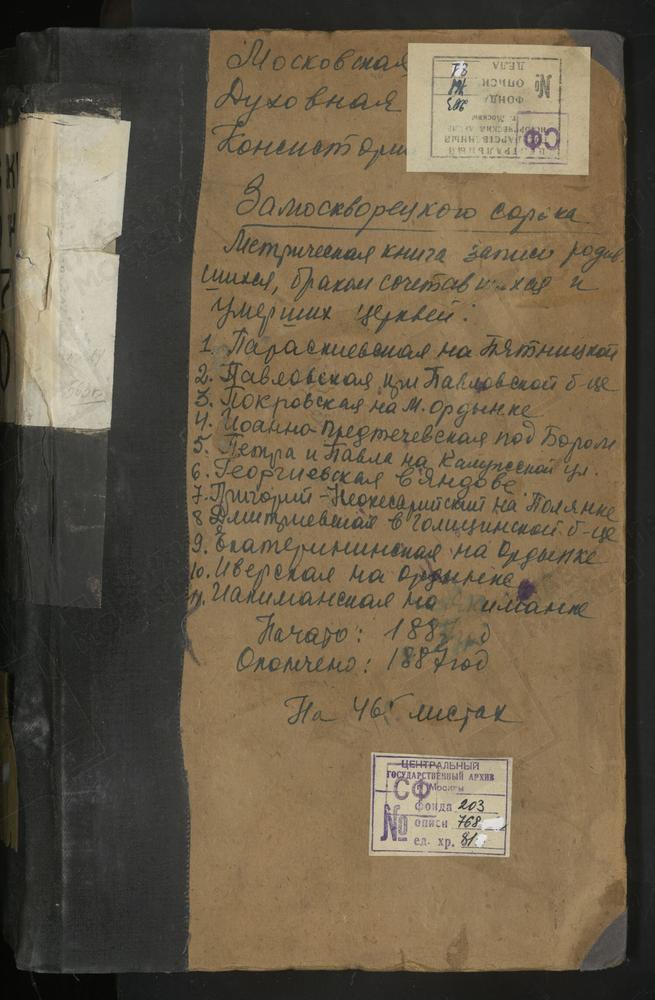 Московская
Духовная
Консистори
Замоскворецкого сорока
Метрическая книга записи родив
шихся, браком сочетавшихся и
умерших церквей:
1. Параскиевская на Пятницкой
2. Павловская при Павловской б-це
3. Покровская на М. Ордынке
4. Иоанно-Предтечевская под Бором
5. Петра и Павла на Калужской ул.
6. Георгиевская в Яндове
7. Григорий-Неокесарийский на Полянке
8 Дмитриевская в Голицинской б-це
9. Екатерининская на Ордынке
10. Иверская на Ордынке
11. Иакиманская на Якиманке
Начато: 1887 год
Окончено: 1887 год
На листах
ЦЕНТРАЛЬНЫЙ
ГОСУДАРСТВЕННЫЙ АРХИВ
г. Москвы
СФ
№
фонда 203
описи 768
ед. хр.
СФ
№
ФОНДА
ОПИСИ
ДЕЛА
г. Москвы